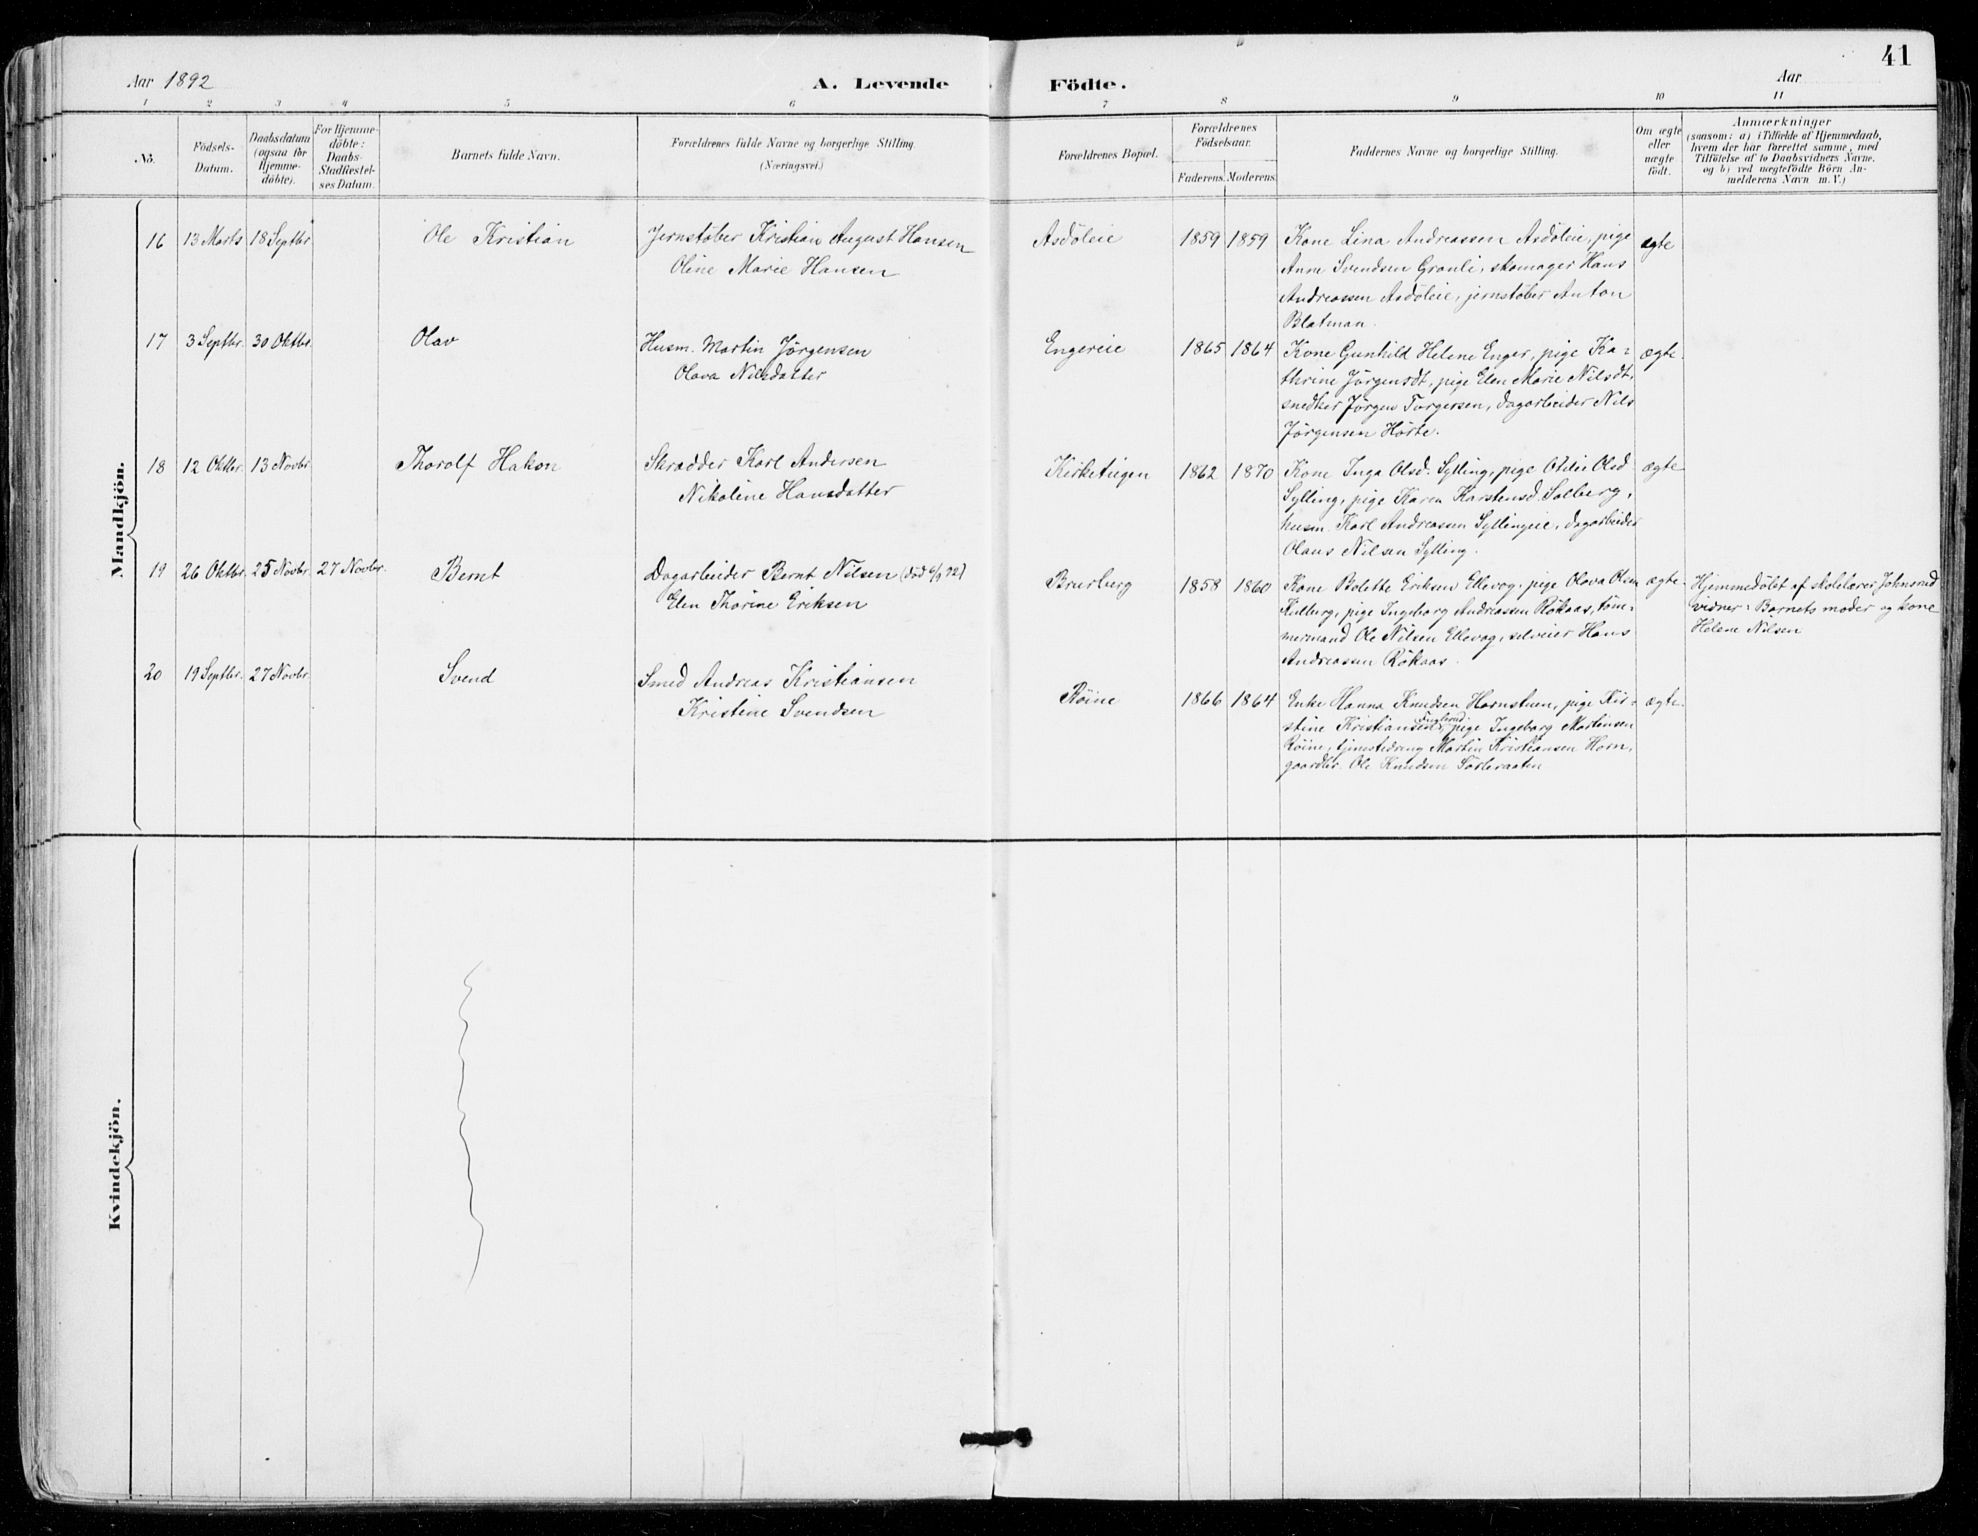 41
Aar 1892
A. Levende Födte.
Aar
1 2 3 4 5 6 7 8 9 10 11
No.
Födsels-
Datum.
Daabsdatum
(ogsaa for
Hjemme-
döbte).
For Hjemme-
döbte:
Daabs-
Stadfæstel-
ses Datum.
Barnets fulde Navn.
Forældrenes fulde Navne og borgerlige Stilling
(Næringsvei.)
Forældrenes Bopæl.
Forældrenes
Födselsaar.
Faderens. Moderens.
Faddernes Navne og borgerlige Stilling.
Om ægte
eller
uægte
födt.
Anmærkninger
(saasom: a) i Tilfælde af Hjemmedaab,
hvem der har forrettet samme, med
Tilföielse af to Daabsvidners Navne.
og b) ved uægtefödte Börn An-
melderens Navn m. V.)
Mandkjön.
16 13 Marts 18 Septbr Ole Kristian
Jernstøber Kristian August Hansen
Oline Marie Hansen
Asdøleie 1859 1859
Kone Lina Andreassen Asdøleie, pige
Anne Svendsen Granli, skomager Hans
Andreassen Asdøleie, jernstøber Anton
Blatman.
ægte
17 3 Septbr. 30 Oktbr. Olav
Husm. Martin Jørgensen
Olava Nilsdatter
Engereie 1865 1864
Kone Gunhild Helene Enger, pige Ka-
thrine Jørgensdt, pige Elen Marie Nilsdt,
snedker Jørgen Torgersen, dagarbeider Nils
Jørgensen Hørte.
ægte.
18 12 Oktbr. 13 Novbr. Thorolf Hakon
Skrædder Karl Andersen
Nikoline Hansdatter
Kirketeigen 1862 1870
Kone Inga Olsd. Sylling, pige Otilie Olsd
Sylling, pige Karen Karstensd. Solberg,
husm. Karl Andreassen Syllingeie, dagarbeider
Olaus Nilsen Sylling.
ægte
19 26 Oktbr. 25 Novbr. 27 Novbr. Bernt
Dagarbeider Bernt Nilsen (død 6/9 92)
Elen Thorine Eriksen
Brurberg 1858 1860
Kone Bolette Eriksen Ellevog, pige Olava Olsen
pige Ingeborg Andreassen Røkaas, tøm-
mermand Ole Nilsen Ellevog, selveier Hans
Andreassen Røkaas.
ægte.
Hjemmedøbt af skolelærer Johnsrud
vidner: Barnets moder og kone
Helene Nilsen
20 19 Septbr. 27 Novbr. Svend
Smed Andreas Kristiansen
Kristine Svendsen
Røine 1866 1864
Enke Hanna Knudsen Hornstuen, pige Kir-
stine Kristiansen Fuglerud, pige Ingeborg Martinsen
Røine, tjenestedreng Martin Kristiansen Horn,
gaardbr. Ole Knudsen Sørbraaten
ægte.
Kvindekjön.